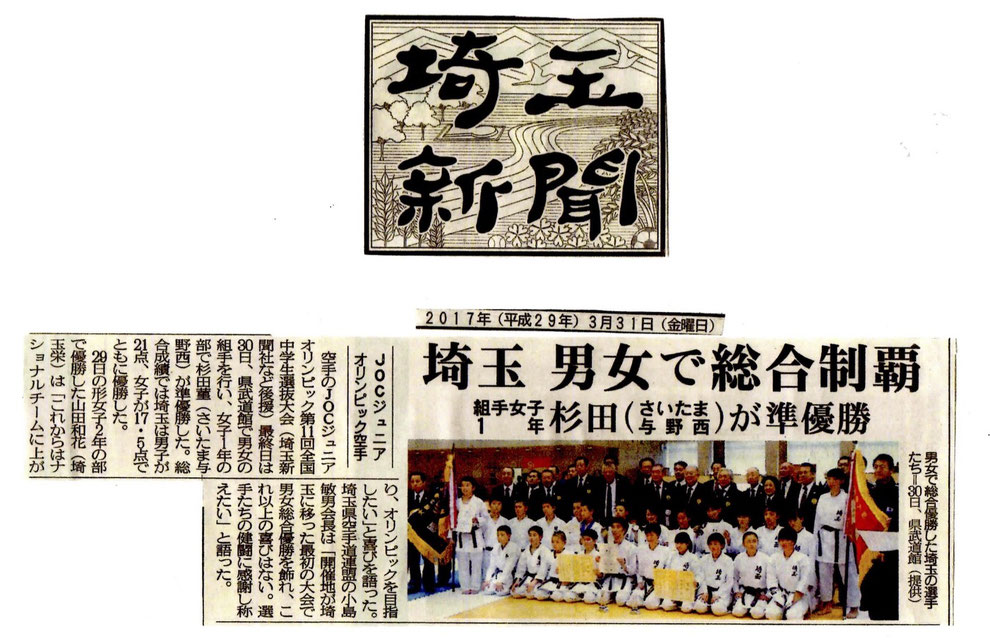 埼玉
新聞
2017年(平成29年)3月31日(金曜日)
埼玉 男女で総合制覇
組手女子1年 杉田(さいたま与野西)が準優勝
男女で総合優勝した埼玉の選手
たち=30日、県武道館(提供)
JOCジュニア
オリンピック空手
空手のJOCジュニア
オリンピック第11回全国
中学生選抜大会(埼玉新
聞社など後援)最終日は
30日、県武道館で男女の
組手を行い、女子1年の
部で杉田菫(さいたま与
野西)が準優勝した。総
合成績では埼玉は男子が
21点、女子が17・5点で
ともに優勝した。
29日の形女子2年の部
で優勝した山田和花(埼
玉栄)は「これからはナ
ショナルチームに上が
り、オリンピックを目指
したい」と喜びを語った。
埼玉県空手道連盟の小島
敏男会長は「開催地が埼
玉に移った最初の大会で
男女総合優勝を飾れ、こ
れ以上の喜びはない。選
手たちの健闘に感謝し称
えたい」と語った。